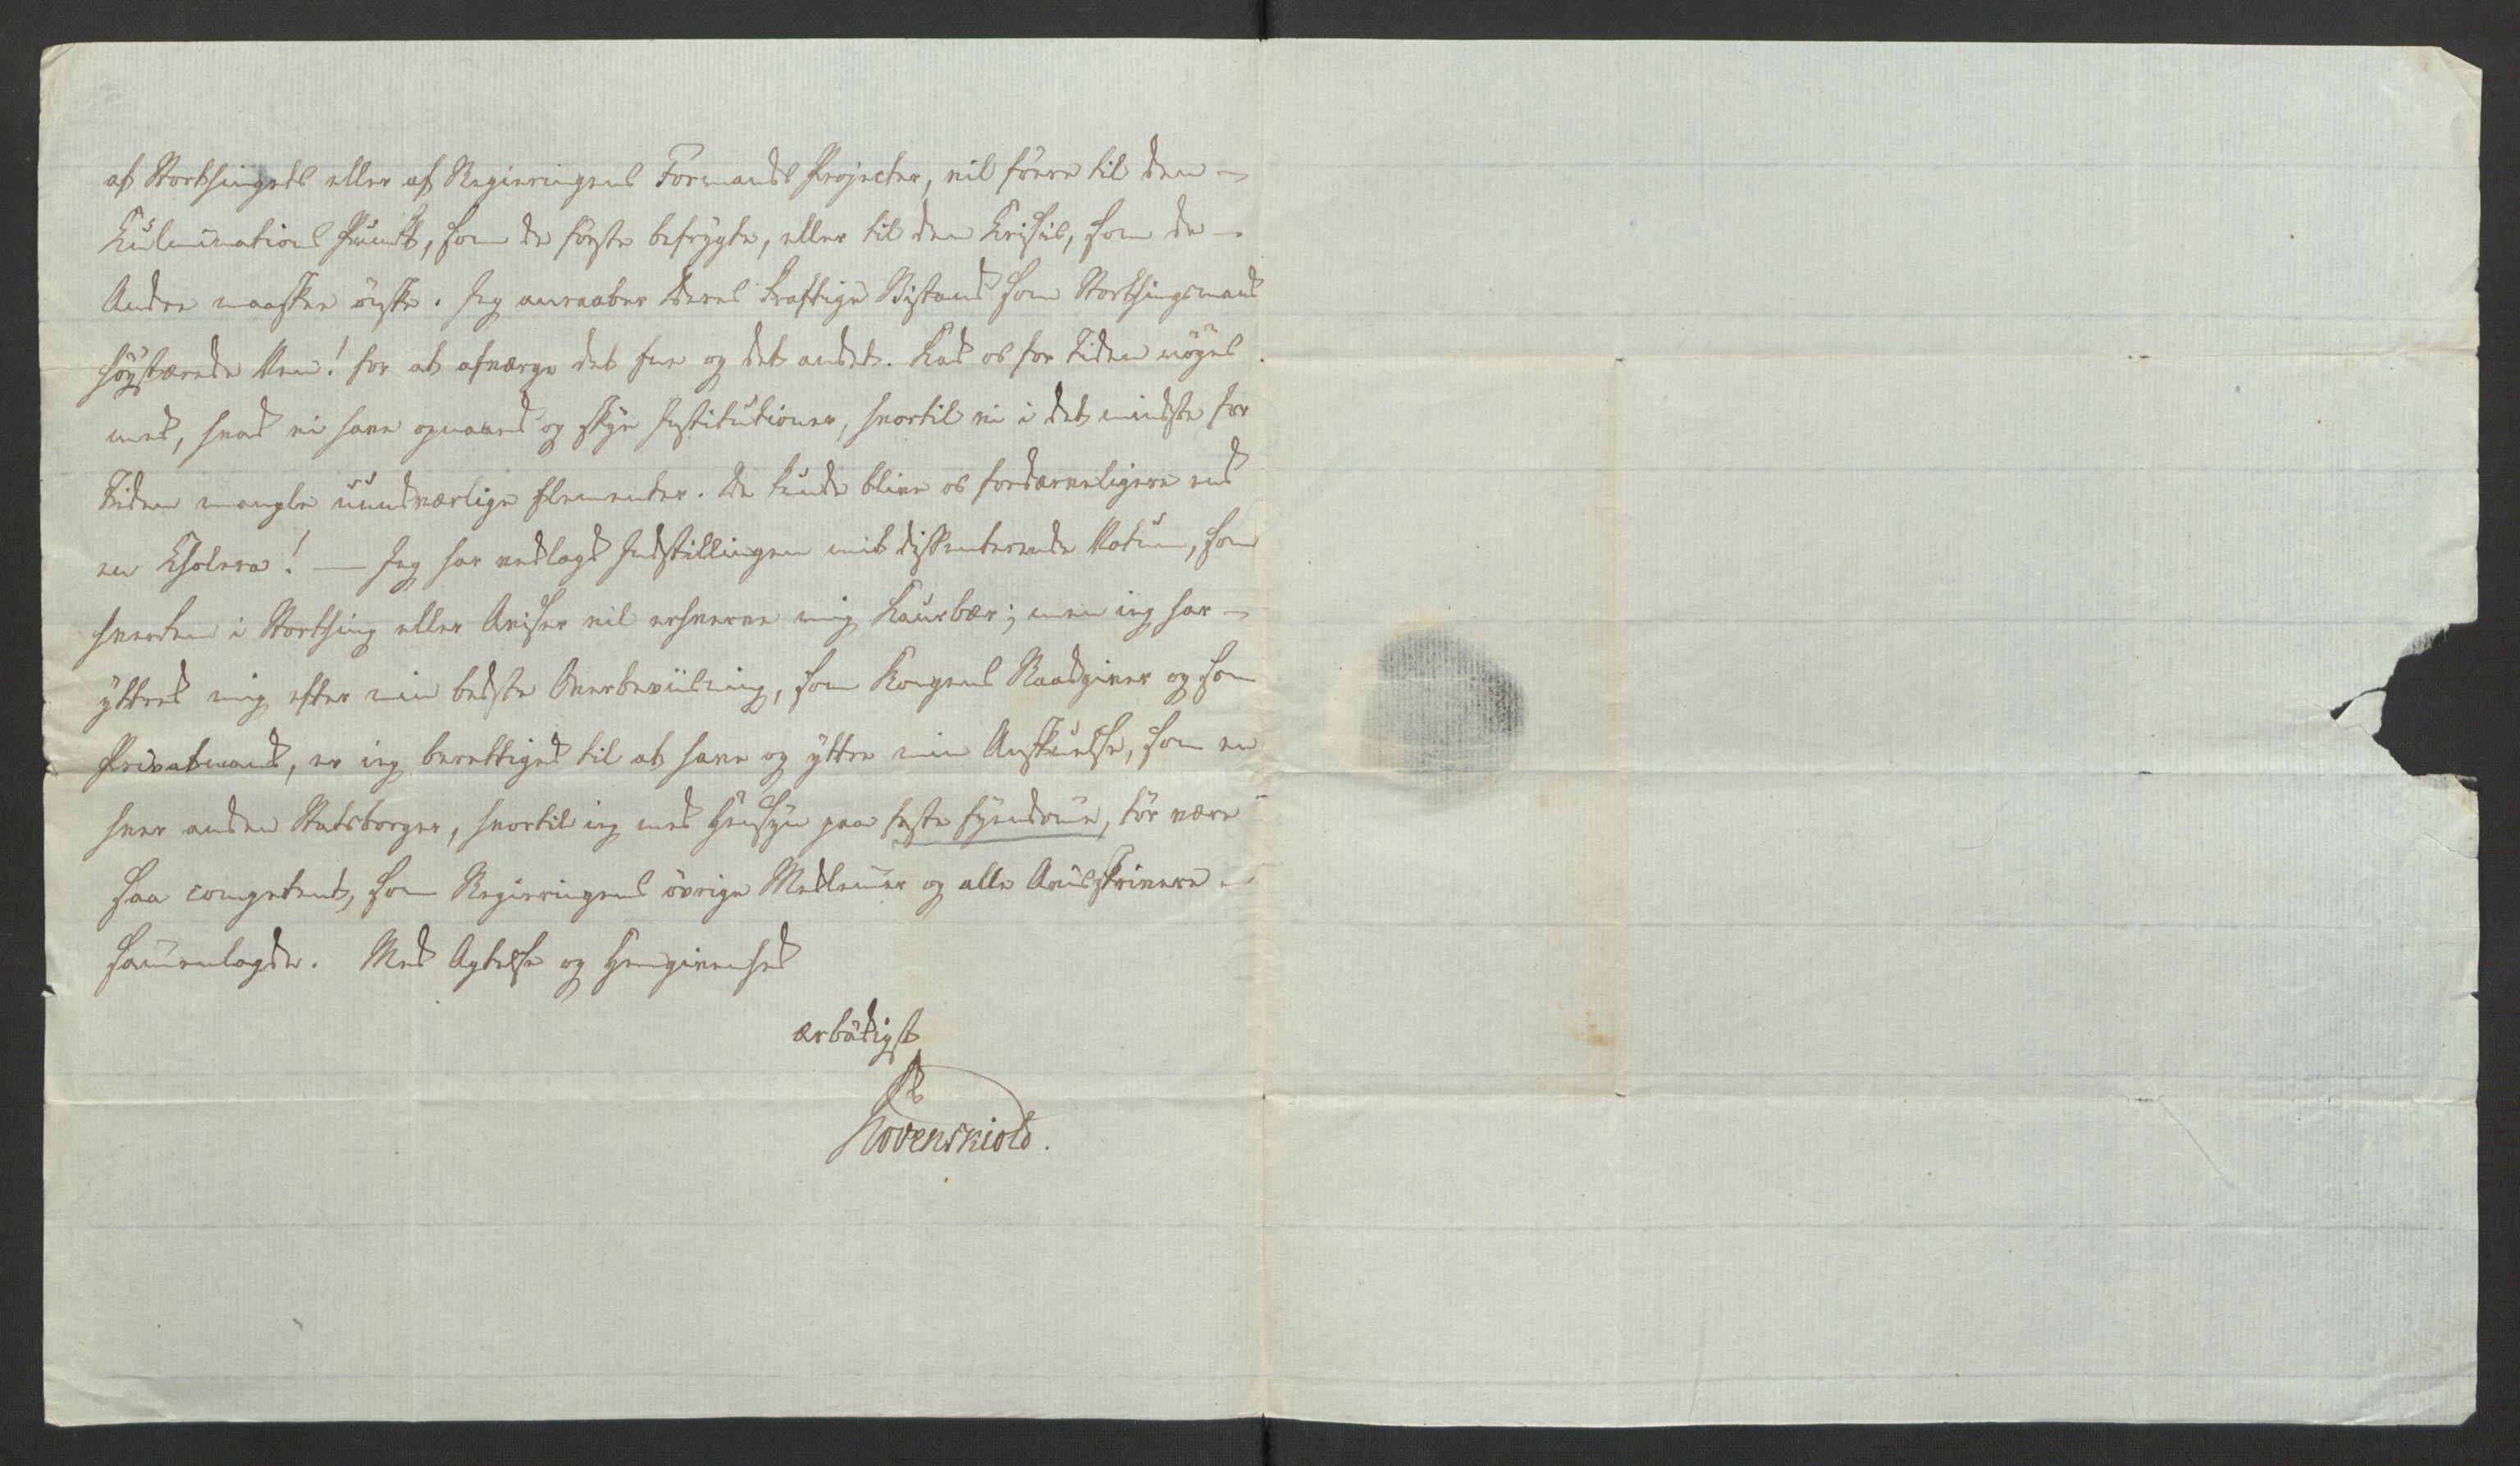 af Storthingets eller af Regieringens Formands Projecter, vil före til den
Kulminations Punkt, som de förste befrygte, eller til den Krisis, som de
Andre maaskee önske. Jeg anraaber Deres kraftige Bistand som Storthingsmand
höystærede Ven! for at afværge det Ene og det andet. Lad os for Tiden nöyes
med, hvad vi have opnaaed og skye Institutioner, hvortil vi i det mindste for
Tiden mangle uundværlige Elementer. De kunde blive os fordærveligere end
en Cholera! — Jeg har vedlagt Indstillingen mit dissenterende Votum, som
hverken i Storthing eller Aviser vil erhverve mig Laurbær; men ieg har
yttred mig efter min bedste Overbeviisning, som Kongens Raadgiver og som
Privatmand, er ieg berettiged til at have og yttre min Anskuelse, som en
hver anden Statsborger, hvortil ieg med Hensyn paa faste Eyendome, tör være
saa competent, som Regieringens övrige Medlemer og alle Avisskrivere
samenlagde. Med Agtelse og Hengivenhed
ærbödigst
Lövenskiold.